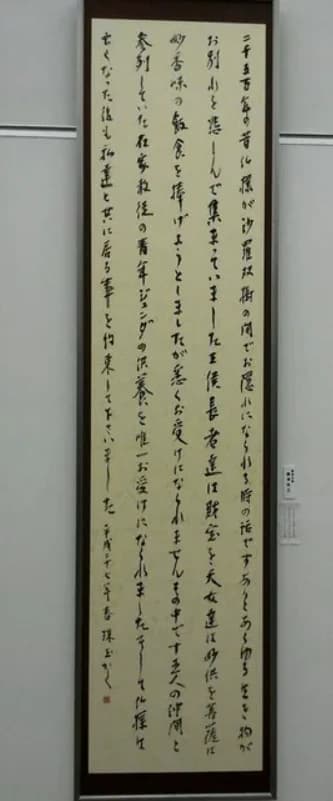 二千五百年の昔仏様が沙羅双樹の間でお隠れになられる時の話ですありとあらゆる生き物が
お別れを悲しんで集まっていました王侯長者達は財宝を天女達は妙供を菩薩は
妙香味の飯食を捧げようとしましたが悉くお受けになられませんその中です五人の仲間と
参列していた在家教徒の青年ジュンダの供養を唯一お受けになられましたそして仏様は
亡くなった後も私達と共に居る事を約束して下さいました 平成二十七年春 珠玉かく